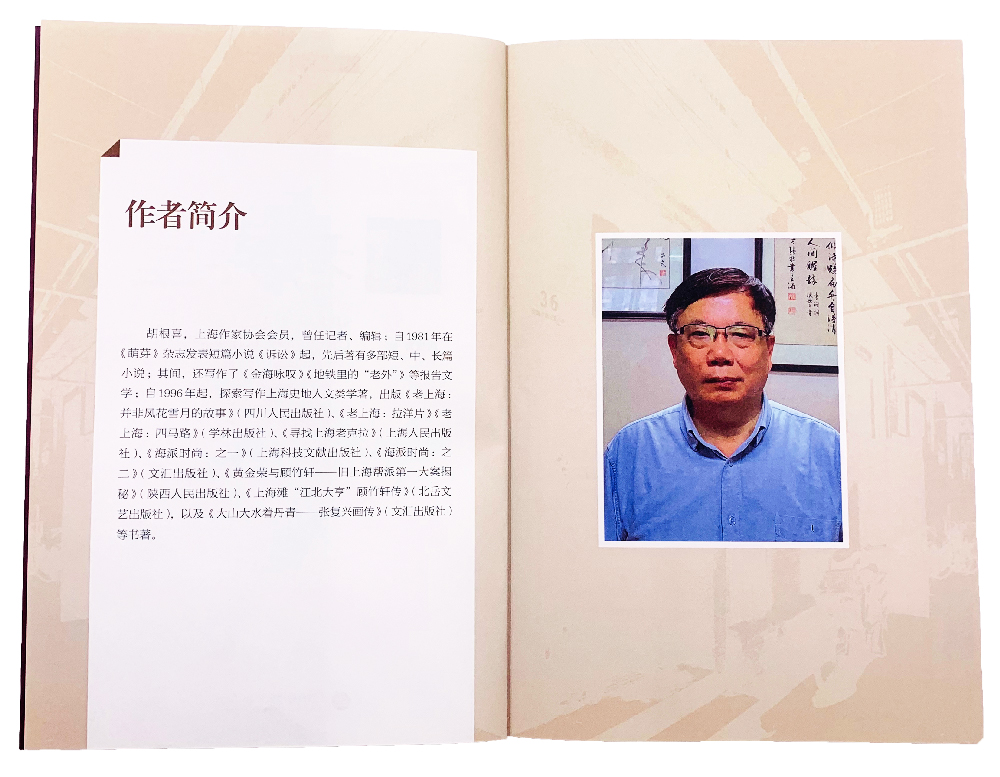 作者简介
胡根喜，上海作家协会会员，曾任记者、编辑；自1981年在
《萌芽》杂志发表短篇小说《诉讼》起，先后著有多部短、中、长篇
小说；其间，还写作了《金海咏叹》《地铁里的“老外”》等报告文
学；自1996年起，探索写作上海史地人文类学著，出版《老上海：
并非风花雪月的故事》（四川人民出版社）、《老上海：拉洋片》《老
上海：四马路》（学林出版社）、《寻找上海老克拉》（上海人民出版
社）、《海派时尚：之一》（上海科技文献出版社）、《海派时尚：之
二》（文汇出版社）、《黄金荣与顾竹轩——旧上海帮派第一大案揭
秘》（陕西人民出版社）、《上海滩“江北大亨”顾竹轩传》（北岳文
艺出版社），以及《大山大水着丹青——张复兴画传》（文汇出版社）
等书著。
36
人间